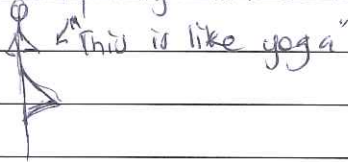 "This is like yoga"